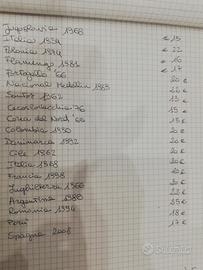 Jugoslavia 1968
Italia 1934 € 15
Polonia 1974 € 22
Flamengo 1981 € 16
Portogallo '66 € 17
Nacional Medellin 1989 20 €
Santos 1962 22 €
Cecoslovacchia 76 15 €
Corea del Nord '66 15 €
Colombia 1990 20 €
Danimarca 1992 20 €
Cile 1962 20 €
Italia 1968 20 €
Francia 1998 20 €
Inghilterra 1966 20 €
Argentina 1986 22 €
Romania 1994 25 €
Perù 18 €
Spagna 2008 17 €
subito